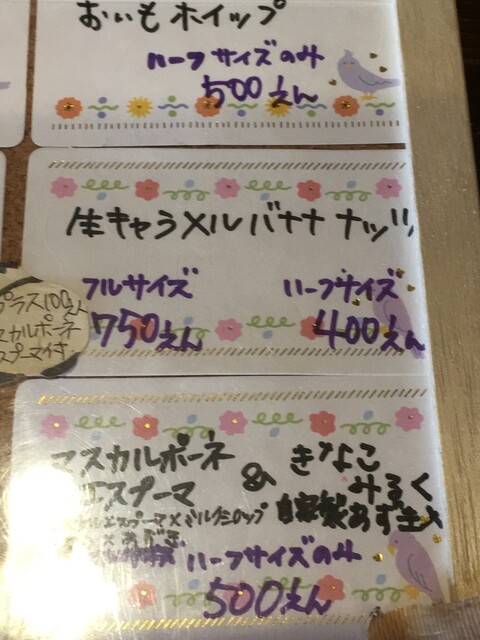 おいもホイップ
ハーフサイズのみ
500えん
生キャラメルバナナナッツ
フルサイズ
ハーフサイズ
750えん
400えん
プラス100えん
マスカルポーネ
エスプーマ付
マスカルポーネ
エスプーマ
&
きなこ
みるく
自家製あずき
ハーフサイズのみ
500えん